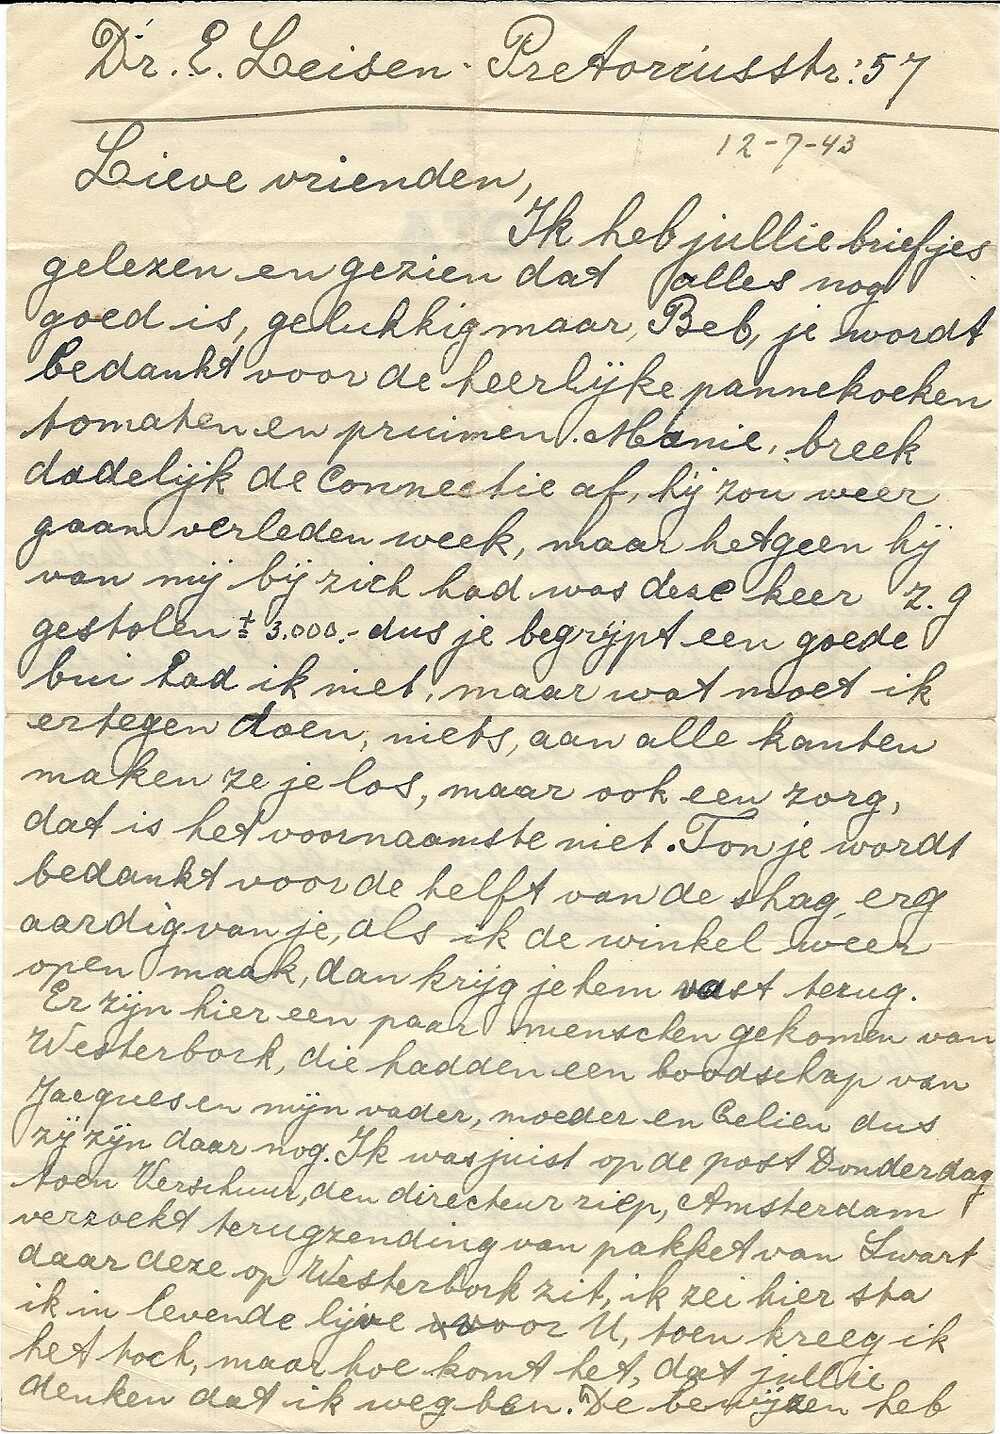 Dr. E. Leisen - Pretoriusstr: 57
12-7-43
Lieve vrienden,
Ik heb jullie briefjes
gelezen en gezien dat alles nog
goed is, gelukkig maar, Beb, je wordt
bedankt voor de heerlijke pannekoeken
tomaten en pruimen. Manie, breek
dadelijk de Connectie af, hij zou weer
gaan verleden week, maar hetgeen hij
van mij bij zich had was deze keer z.g
gestolen ± 3.000.- dus je begrijpt een goede
bui had ik niet, maar wat moet ik
ertegen doen, niets, aan alle kanten
maken ze je los, maar ook een zorg,
dat is het voornaamste niet. Ton je wordt
bedankt voor de helft van de shag, erg
aardig van je, als ik de winkel weer
open maak, dan krijg je hem vast terug.
Er zijn hier een paar menschen gekomen van
Westerbork, die hadden een boodschap van
Jacques en mijn vader, moeder en Celien dus
zij zijn daar nog. Ik was juist op de post Donderdag
toen Verschuur, den directeur riep, Amsterdam
verzoekt terugzending van pakket van Swart
daar deze op Westerbork zit, ik zei hier sta
ik in levende lijve voor U, toen kreeg ik
het toch, maar hoe komt het, dat jullie
denken dat ik weg ben. De bewijzen heb